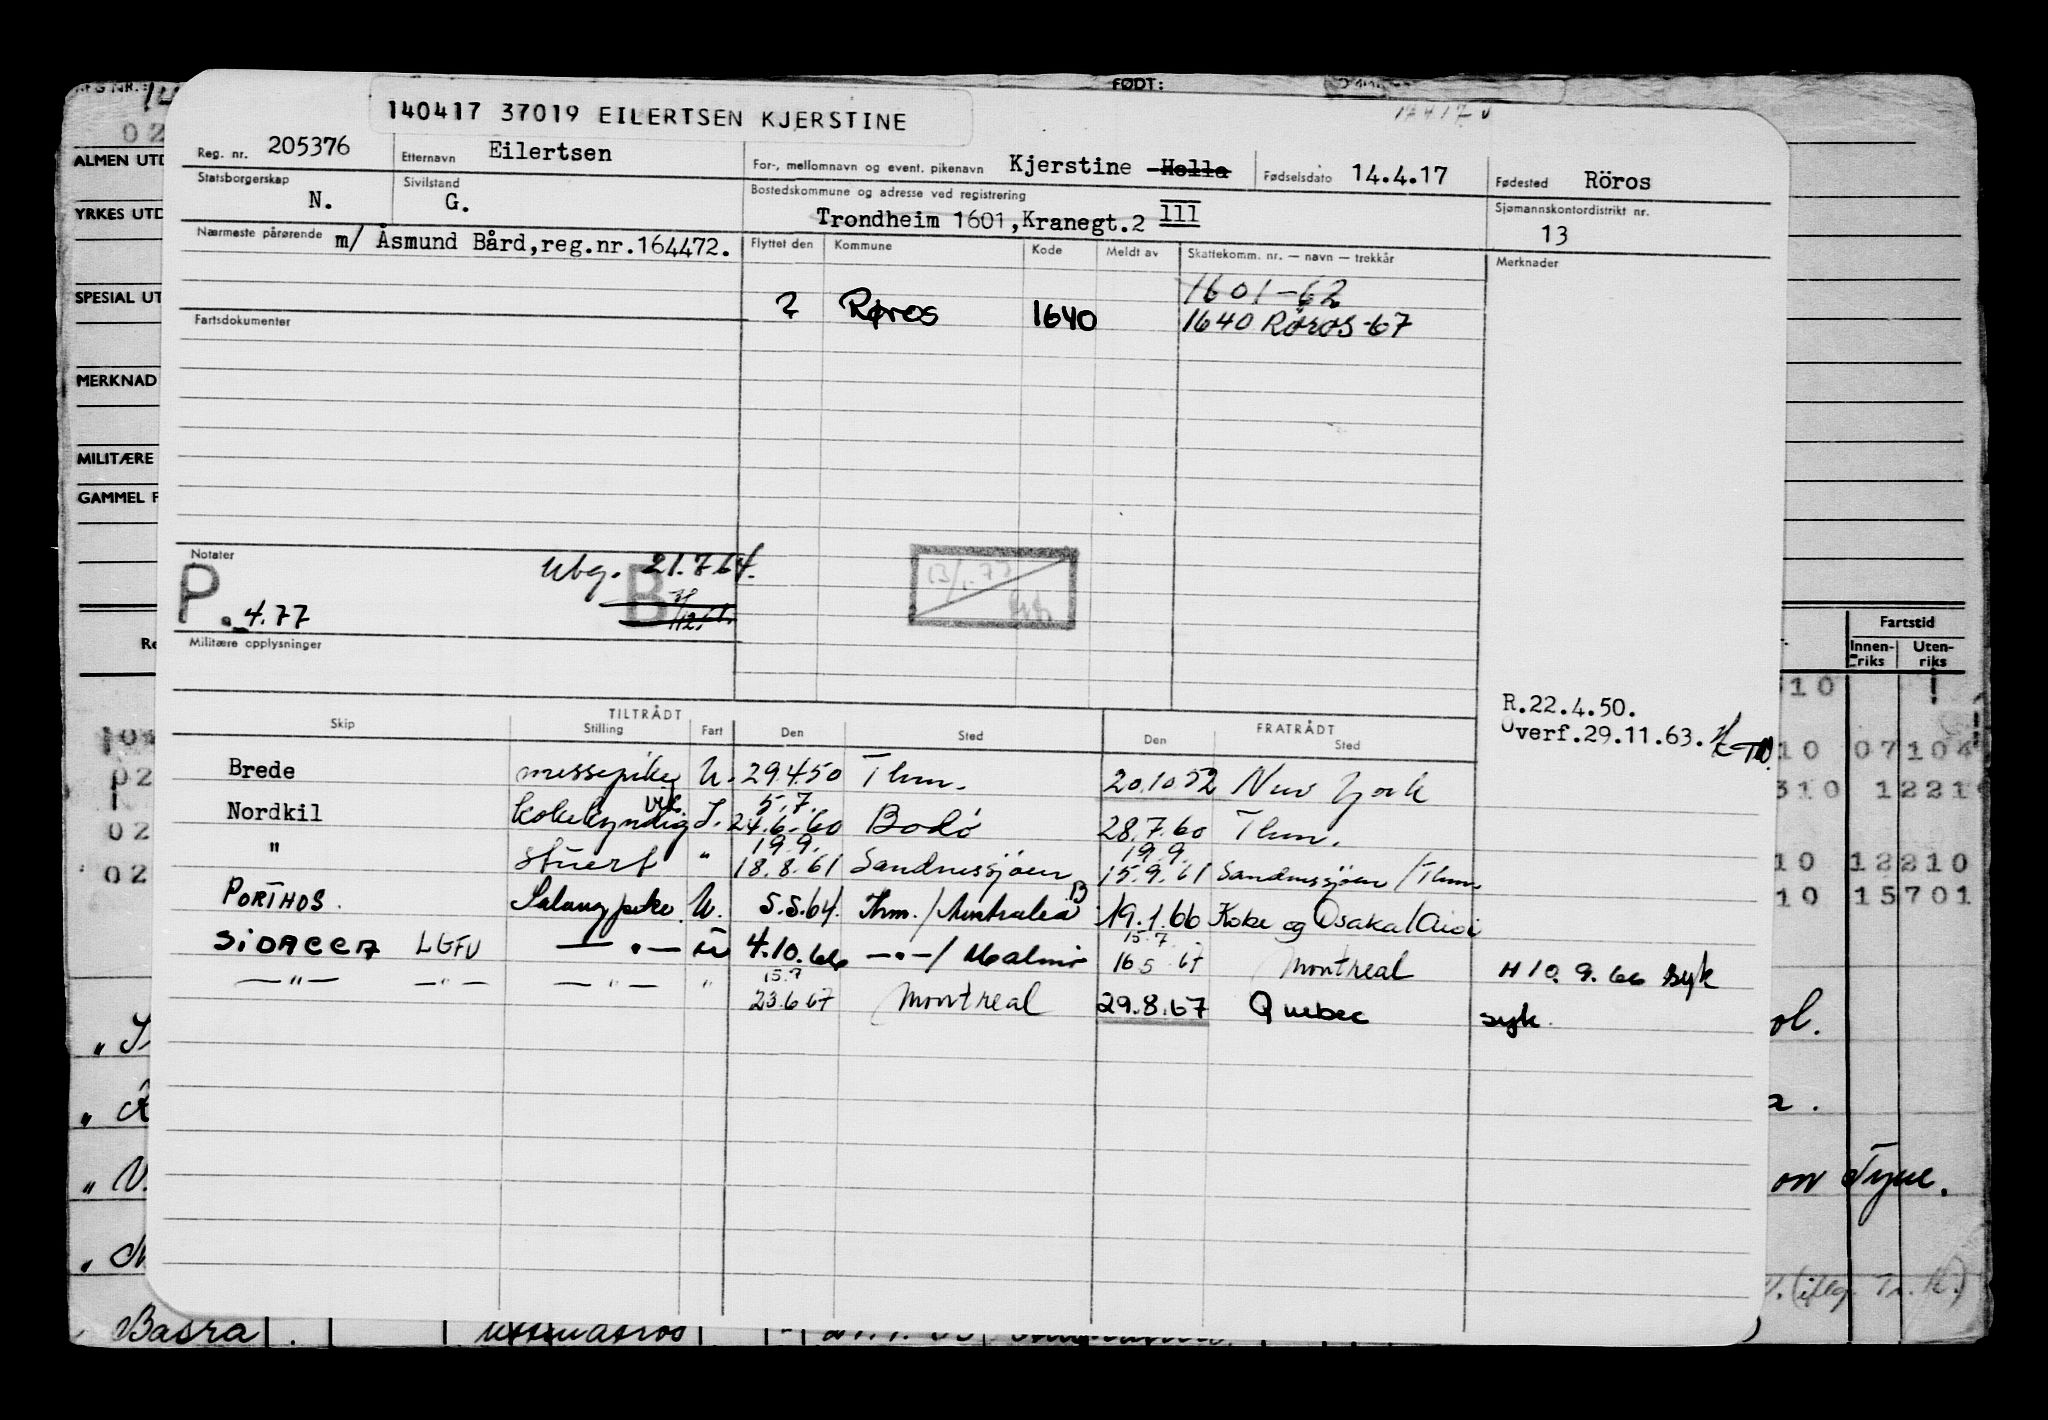 FØDT:
140417 37019 EILERTSEN KJERSTINE
Reg. nr. 205376 Etternavn Eilertsen For-, mellomnavn og event. pikenavn Kjerstine Holla Fødselsdato 14.4.17 Fødested Röros
Statsborgerskap N. Sivilstand G. Bostedskommune og adresse ved registrering Trondheim 1601,Kranegt.2 III Sjømannskontordistrikt nr. 13
Nærmeste pårørende m/ Åsmund Bård,reg.nr.164472. Flyttet den Kommune Kode Meldt av Skattekomm. nr. — navn — trekkår Merknader
1601-62
? Røros 1640 1640 Röros-67
Fartsdokumenter
Notater
Ubg. 21.7.64.
P. 4.77
B
Militære opplysninger
R.22.4.50.
Overf.29.11.63.
TILTRÅDT FRATRÅDT
Skip Stilling Fart Den Sted Den Sted
Brede messepike U. 29.4.50 Thm. 20.10.52 New York
5.7.
Nordkil kokekyndig I. 24.6.60 Bodø 28.7.60 Thm.
19.9. 19.9.
" stuert " 18.8.61 Sandnessjøen 15.9.61 Sandnessjøen / Thm
PORTHOS. Salongpike U. 5.5.64. Thm. / Australia 19.1.66 Kobe og Osaka/Aioi
15.7.
SIDACCA LGFU — " — U 4.10.66 — " — / Malmø 16 5 67 Montreal H 10.9.66 syk
15.7
— " — — " — — " — " 23.6.67 Montreal 29.8.67 Quebec syk.
ALMEN UTD
YRKES UTD
SPESIAL UT
MERKNAD
MILITÆRE
GAMMEL F
Fartstid
Innen-riks Uten-riks
10 07104
310 12210
10 12210
10 15701
on Tyne.
Basra